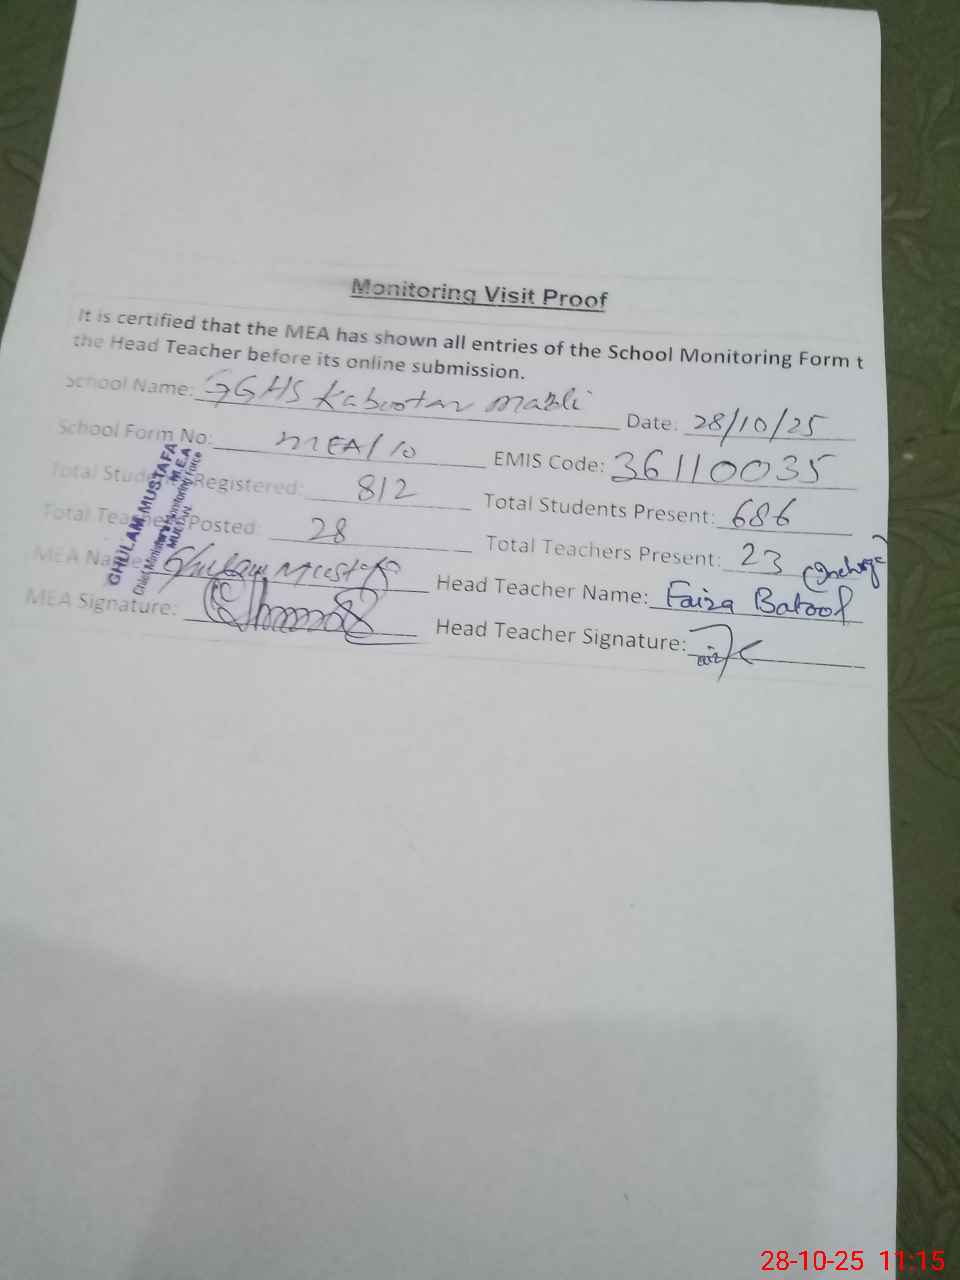 Monitoring Visit Proof
It is certified that the MEA has shown all entries of the School Monitoring Form t
the Head Teacher before its online submission.
School Name: GGHS Kabootar Mandi Date: 28/10/25
School Form No: MEA/10 EMIS Code: 36110035
Total Students Registered: 812 Total Students Present: 686
Total Teachers Posted: 28 Total Teachers Present: 23 (Incharge)
MEA Name: Ghulam Mustafa Head Teacher Name: Faiza Batool
MEA Signature: Head Teacher Signature:
GHULAM MUSTAFA
M.E.A
Chief Minister's Monitoring Force
MULTAN
28-10-25 11:15